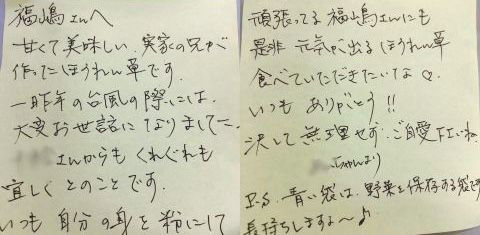 福嶋さんへ
甘くて美味しい、実家の兄が
作ったほうれん草です。
一昨年の台風の際には、
大変お世話になりました。
さんからもくれぐれも
宜しくとのことです。
いつも自分の身を粉にして
頑張ってる福嶋さんにも
是非元気が出るほうれん草
食べていただきたいな♡。
いつもありがとう!!
決して無理せず、ご自愛下さいね。
ちゃんより
P.S. 青い袋は、野菜を保存する袋です
長持ちしますよ〜♪